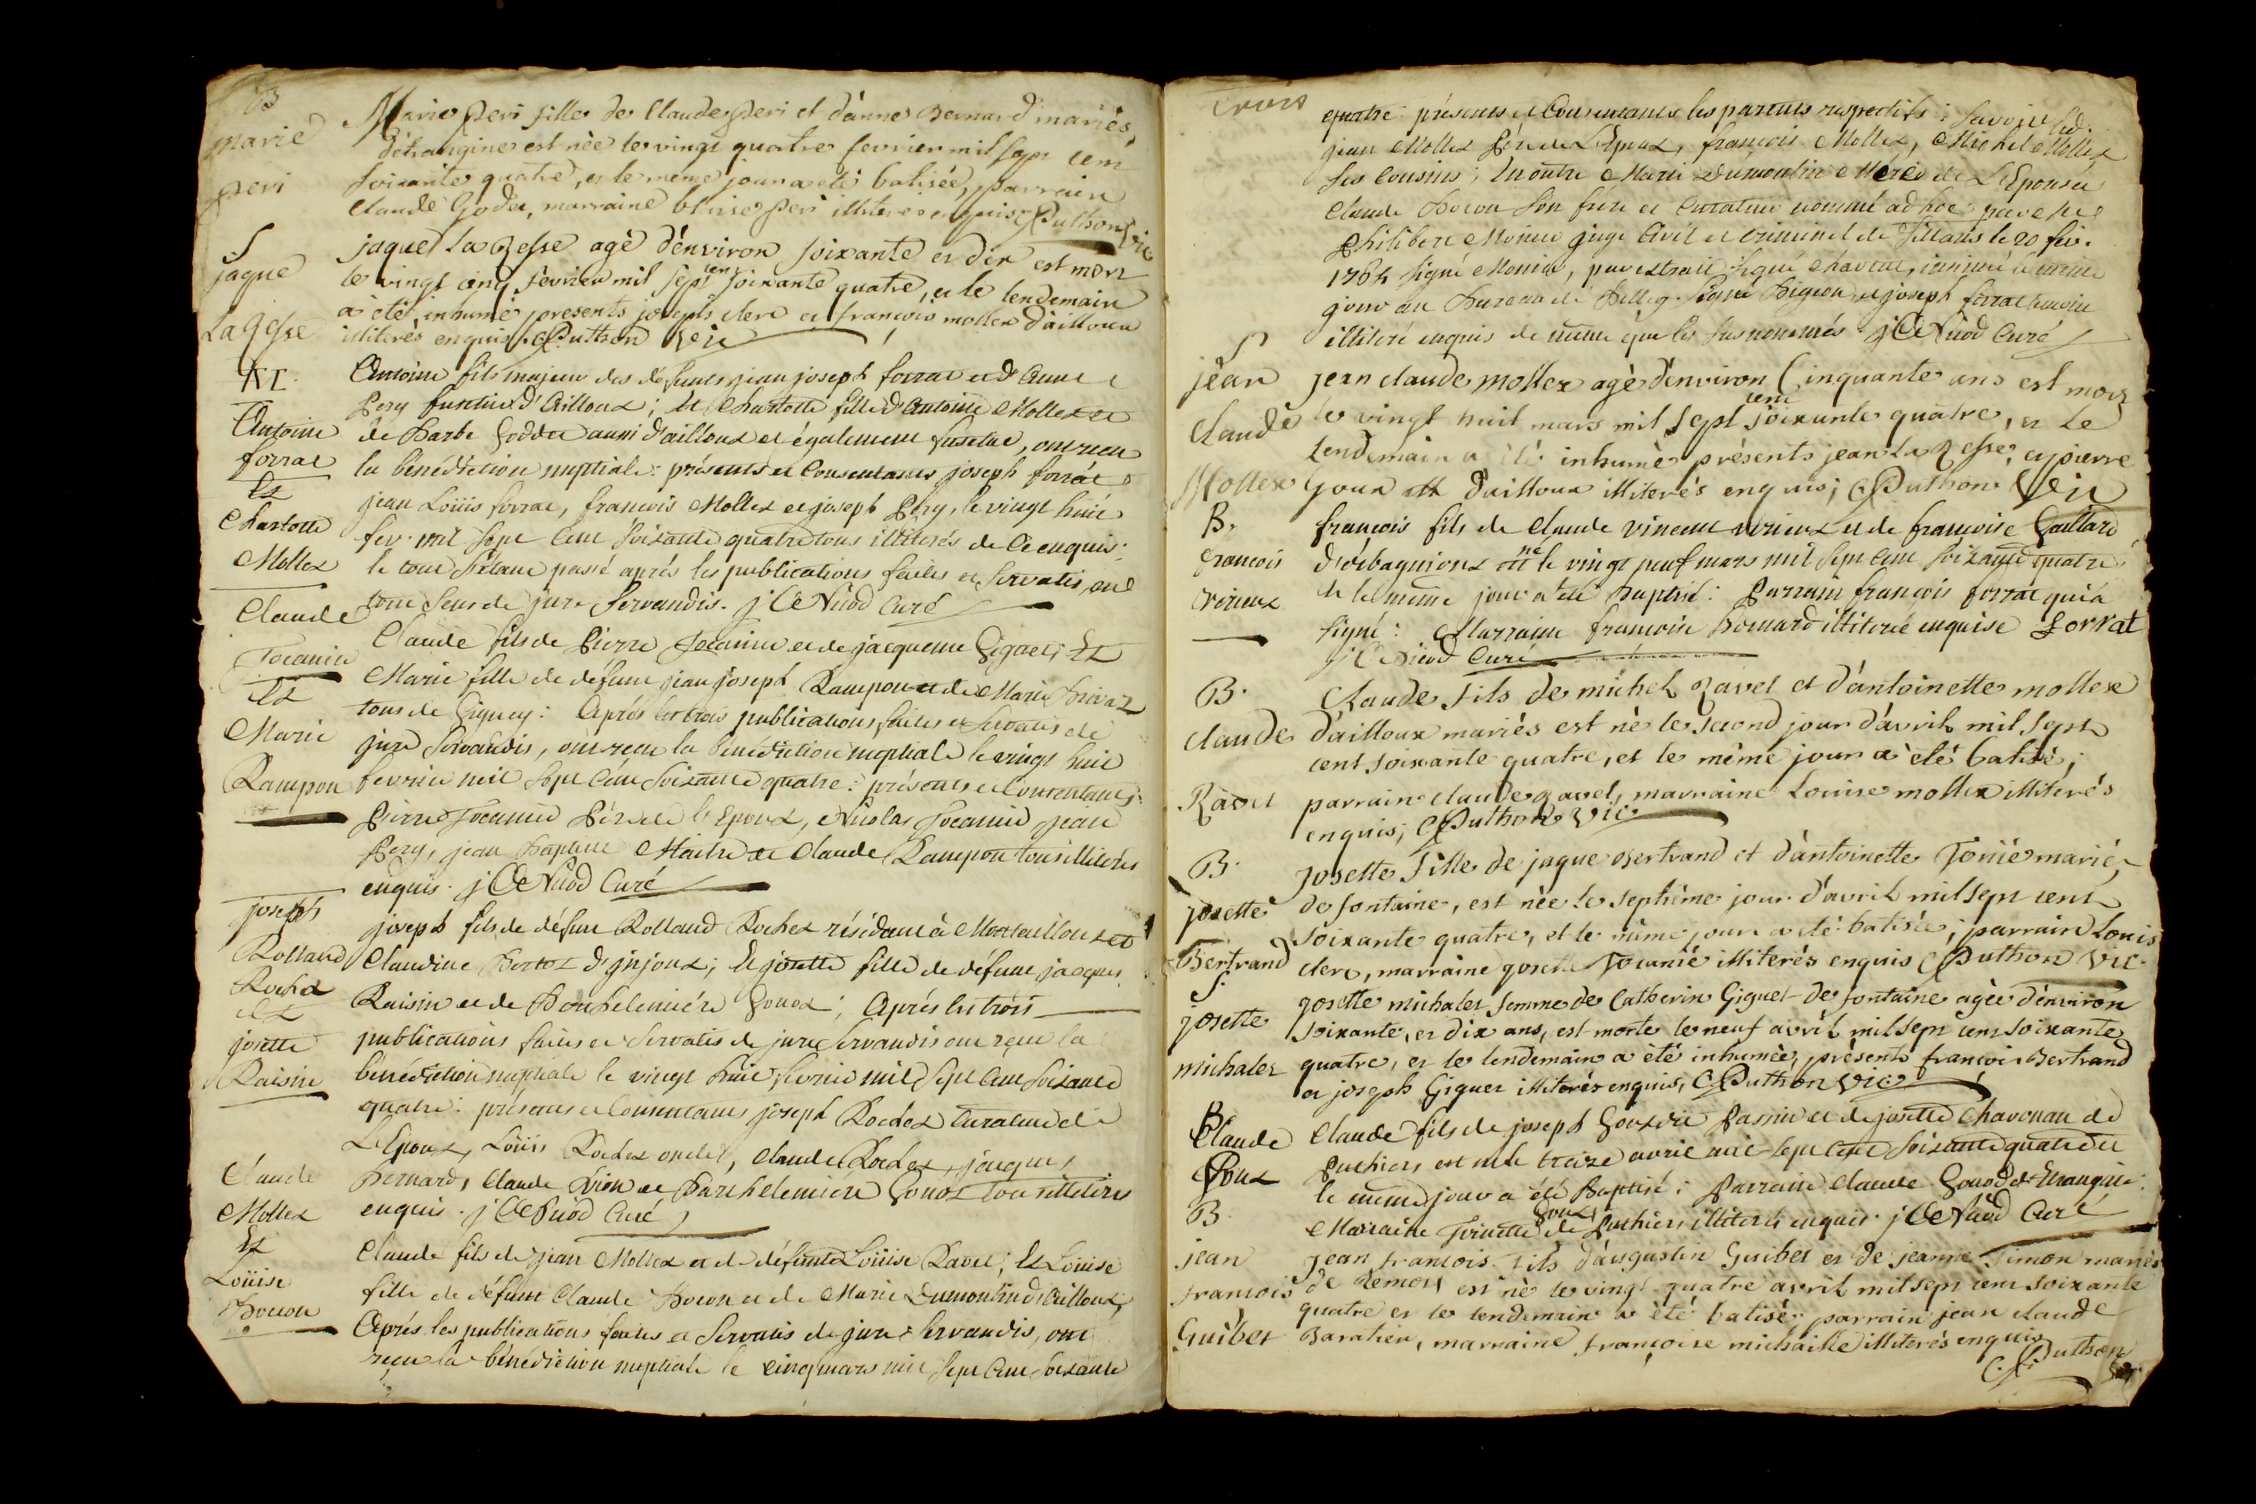 B
marie
peri
Marie peri fille de Claude peri et d'anne Bernard mariés
d'étrangine est née le vingt quatre fevrier mil sept cent
soixante quatre, et le même jour a été batisée, parrain
Claude Goddet, marraine peri illiterés enquis CPuthon Vic
S
jaque
La gesse
jaque La gesse agé d'énviron soixante et dix est mort
le vingt cinq fevrier mil sept cent soixante quatre, et le lendemain
a été inhumé presents joseph clerc et françois mollex d'ailloux
illiterés enquis CPuthon Vic
Antoine
forrat
Et
Charlotte
Mollex
Antoine fils majeur des défunts jean joseph forrat et d'Anne
Pery d'Ailloux; Et Charlotte fille d'Antoine Mollex et
de Barbe Goddet aussi d'ailloux et également , ont reçu
la bénédiction nuptiale: présents et Consentants joseph forrat
jean Loüis forrat, françois Mollex et joseph Pery, le vingt huit
fev. mil sept Cent soixante quatre tous illiterés de ce enquis:
le tout s'étant passé aprés les publications faites et Servatis
de jure Servandis. j C Nicod Curé
Claude
Tocanier
Et
Marie
Rampon
Claude fils de Pierre Tocanier et de jacquemine Giguet; Et
Marie fille de défunt jean joseph Rampon et de Marie
tous de Gignez: Aprés les trois publications faites et Servatis de
jure Servandis, ont reçu la bénédiction nuptiale le vingt huit
fevrier mil sept Cent soixante quatre: présents et Consentants:
Pierre Tocanier Pére de l'Epoux, Nicolas Tocanier jean
Pery, jean Baptiste Maitre et Claude Rampon tous illiterés
enquis. j C Nicod Curé
joseph
Rolland
Rochex
Et
josette
Raisin
joseph fils de défunt Rolland Rochex résidant à Montaillou et
Claudine d'injoux; Et josette fille de défunt jacques
Raisin et de Barthelemiére Gonod; Aprés les trois
publications faites et Servatis de jure Servandis ont reçu la
bénédiction nuptiale le vingt huit fevrier mil sept Cent soixante
quatre: présents et Consentants joseph Rochex Curateur de
L'Epoux, Loüis Rochex oncle, Claude Rochex, jacques
Bernard, Claude et Barthelemiere Gonod tous illiterés
enquis. j C Nicod Curé
Claude
Mollex
Et
Loüise
Bocon
Claude fils de jean Mollex et de défunte Loüise Ravel; Et Loüise
fille de défunt Claude Bocon et de Marie Dumoulin d'Ailloux;
Aprés les publications faites et Servatis de jure Servandis, ont
reçu la bénédiction nuptiale le cinq mars mil sept Cent soixante
trois
quatre: présents et Consentants les parents respectifs: Savoir led.
jean Mollex Pére de L'Epoux, françois Mollex, Michel Mollex
ses Cousins; En outre Marie Dumoulin Mére de L'Epouse
Claude Bocon son frere et Curateur nommé ad hoc par
Philibert Monier juge Civil et criminel de le 20 fev.
1764 signé Monier, par extrait signé , le même
jour au Bureau de signé et joseph forrat
illiteré enquis de même que les susnommés j C Nicod Curé
S
jean
claude
Mollex
jean claude mollex agé d'énviron Cinquante ans est mort
le vingt huit mars mil sept cent soixante quatre, et le
lendemain a été inhumé présents jean La gesse, et pierre
Goux d'ailloux illiterés enquis; CPuthon Vic
B.
françois
françois fils de Claude vincent et de françoise Gaillard
né le vingt neuf mars mil sept Cent soixante quatre
Et le même jour a été baptisé: Parrain françois forrat qui a
signé: Marraine françoise Bernard illiterée enquise Forrat
j C Nicod Curé
B.
claude
Ravel
Claude fils de michel Ravel et d'antoinette mollex
d'ailloux mariés est né le second jour d'avril mil sept
cent soixante quatre, et le même jour a été batisé;
parrain claude ravel, marraine Louise mollex illiterés
enquis; CPuthon Vic
B.
josette
Bertrand
josette fille de jaque Bertrand et d'antoinette mariés
de fontaine, est née le septième jour d'avril mil sept cent
soixante quatre, et le même jour a été batisée; parrain Louis
clerc, marraine josette Tocanié illiterés enquis CPuthon Vic
S.
josette
michalet
josette michalet femme de Catherin Giguet de fontaine agée d'énviron
soixante, et dix ans, est morte le neuf avril mil sept cent soixante
quatre, et le lendemain a été inhumée, présents françois Bertrand
et joseph Giguet illiterés enquis, CPuthon Vic
B.
Claude
Goux
Claude fils de joseph Goux de et de josette Chavenan de
Puthiers est né le treize avril mil sept Cent soixante quatre Et
le même jour a été Baptisé: Parrain Claude Gonod d'Etrangine:
Marraine Goux de Puthiers illiterés enquis. j C Nicod Curé
B.
jean
francois
Guibet
jean francois fils d'augustin Guibet et de jeanne Simon mariés
de est né le vingt quatre avril mil sept cent soixante
quatre et le lendemain a été batisé; parrain jean claude
Baratier, marraine françoise michaille illiterés enquis
C. Puthon
Vic